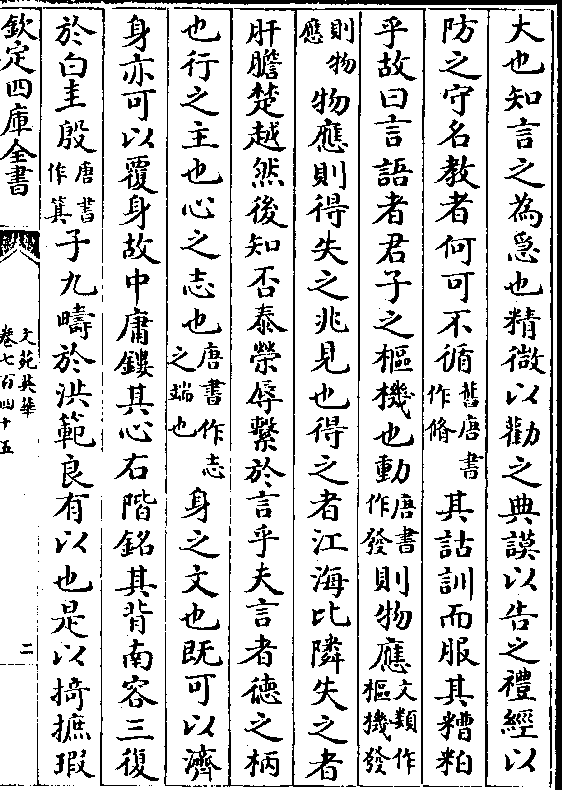 大也知言之為也精微以勸之典謨以告之禮經以
防之守名教者何可不循舊唐書作脩其詁訓而服其糟粕
乎故曰言語者君子之樞機也動唐書作發則物應文類作樞機發
則物應物應則得失之兆見也得之者江海比隣失之者
肝膽楚越然後知否泰榮辱繫於言乎夫言者德之柄
也行之主也心之志也唐書作志之端也身之文也既可以濟
身亦可以覆身故中庸鏤其心右階銘其背南容三復
於白圭殷唐書作箕子九疇於洪範良有以也是以掎摭瑕
欽定四庫全書
文苑英華
卷七百四十五
二